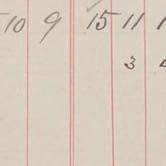 10 9 15 11
3